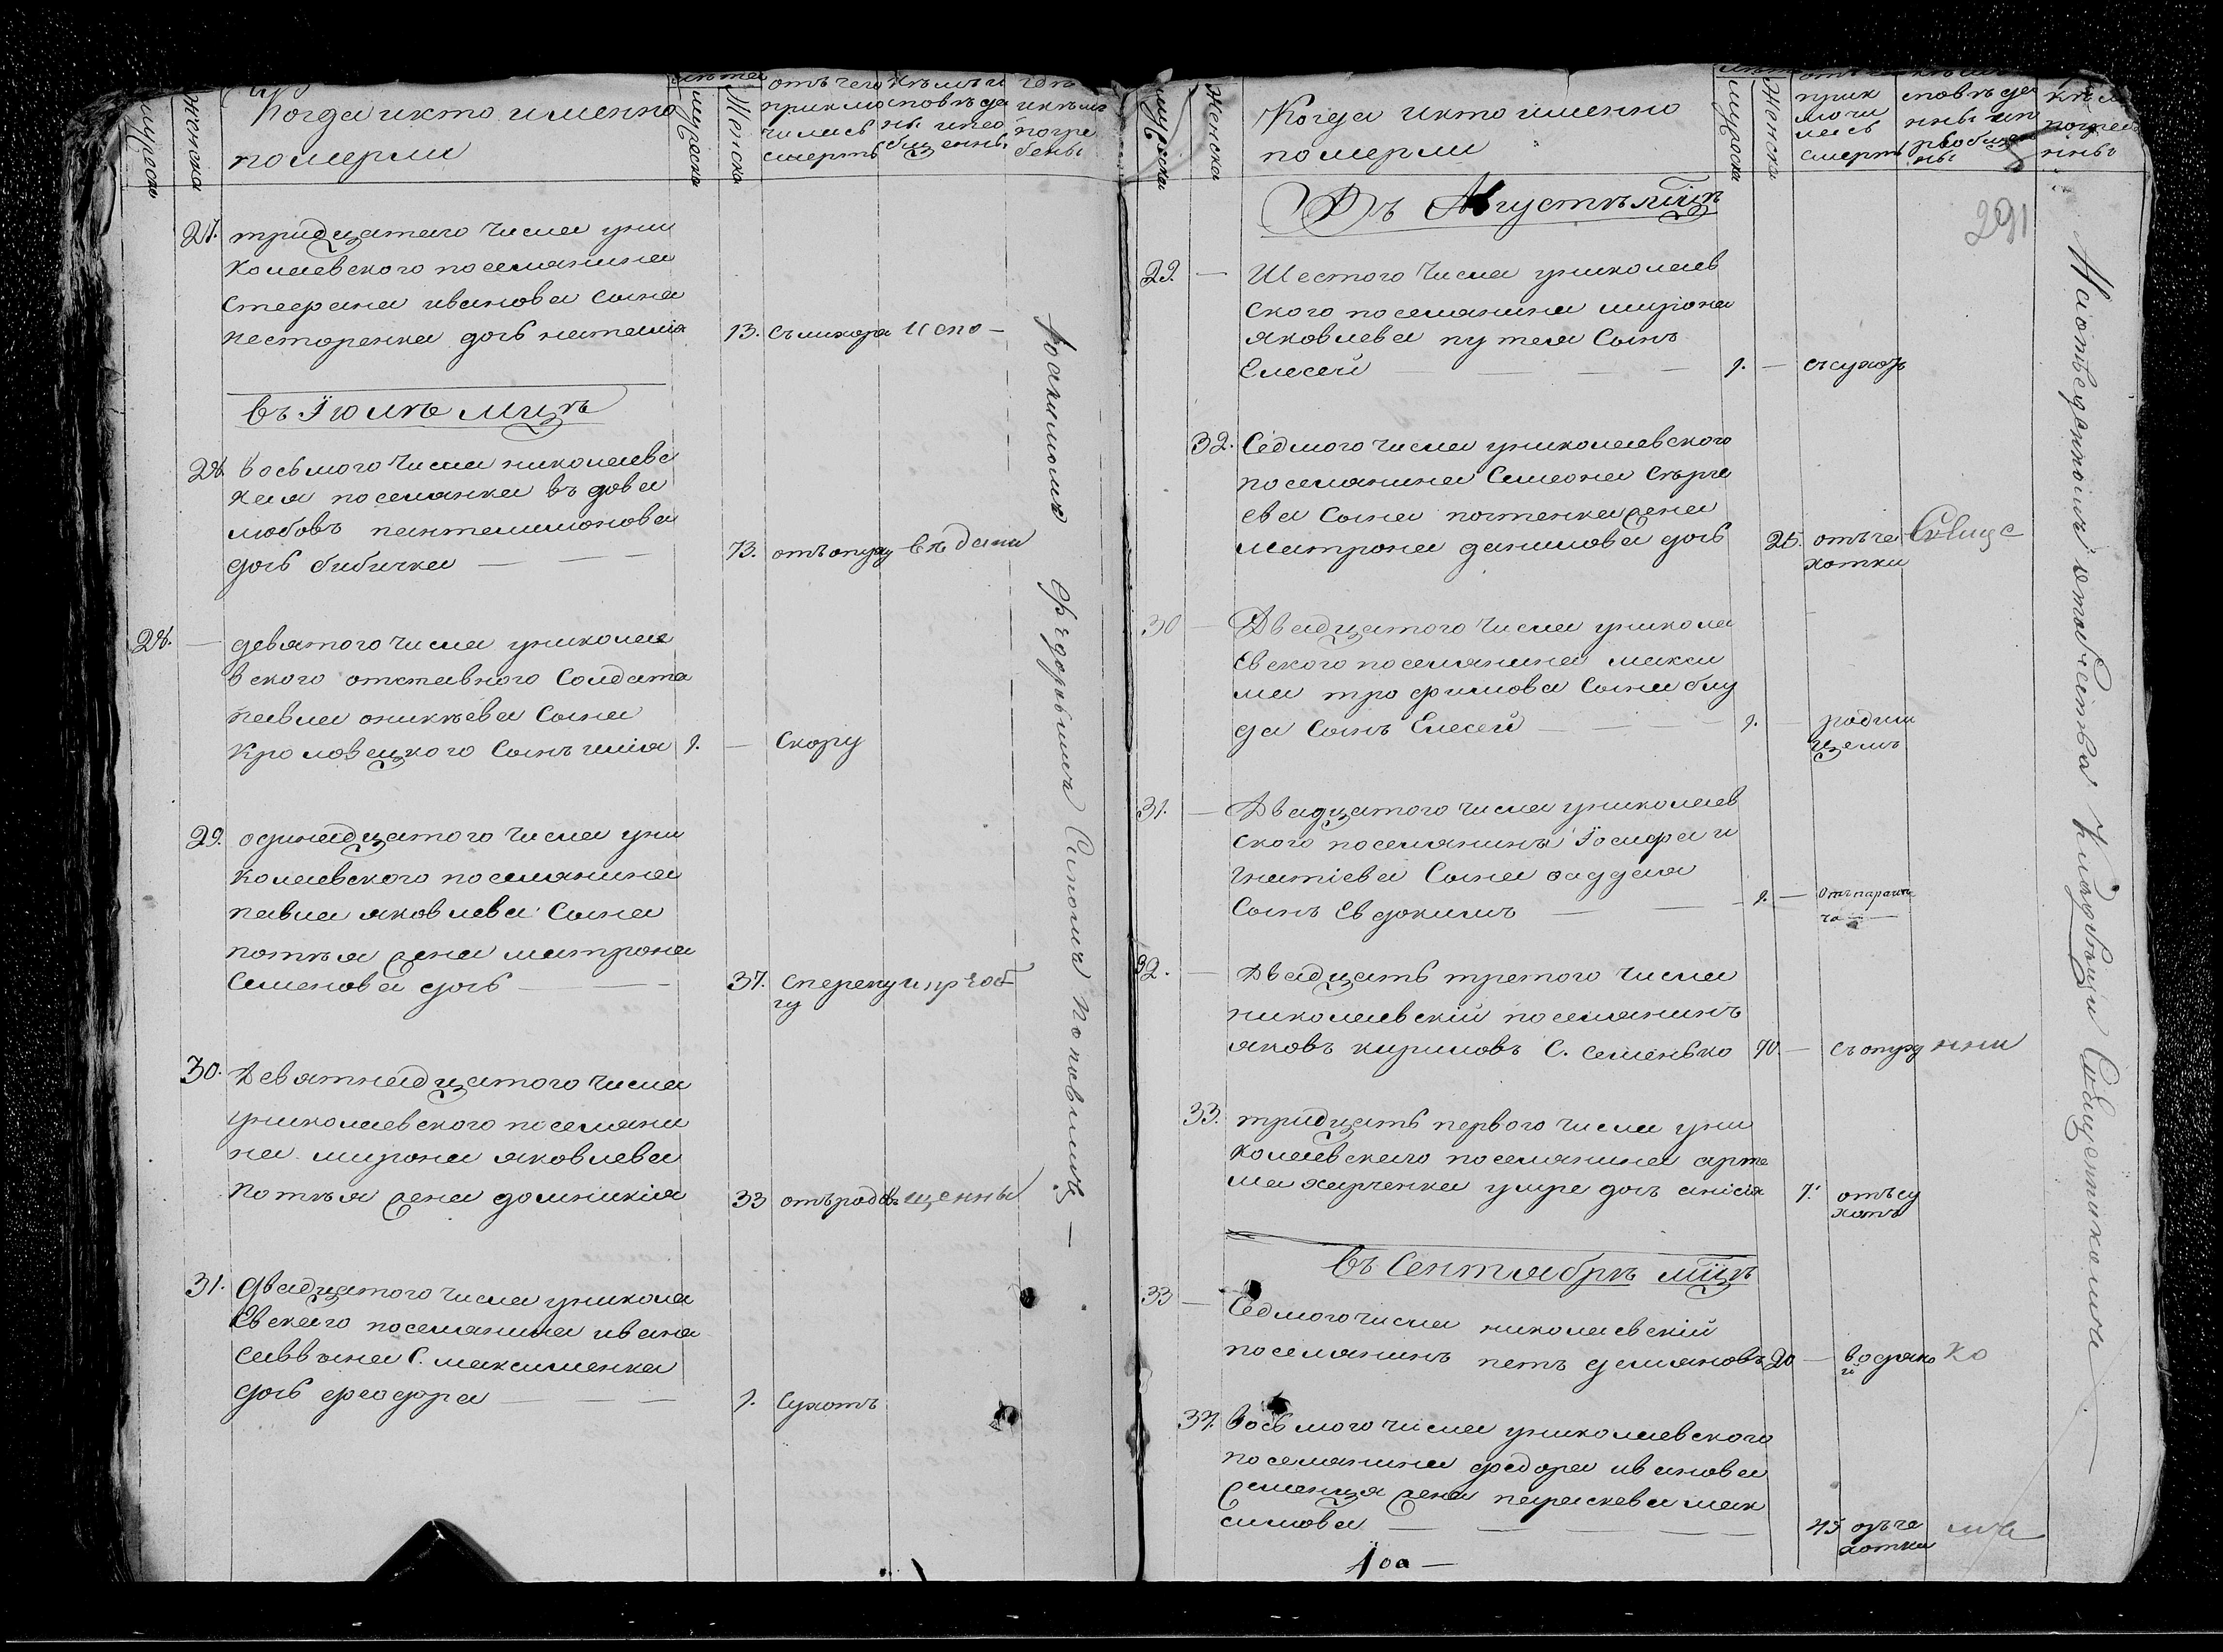 мужеска
женска
Когда и кто именно
померли
лѣта
мужеска
Женска
отъ чего
приклю
чилась
смерть
кѣмъ и
сповѣда
ны и прео
бщенны
гдѣ
и кѣмъ
погре
бены
27. тридцатаго числа уни
колаевского поселянина
стефана иванова сына
несторенка дочь наталія 13. съ лихора испо —
въ Іюлѣ мцѣ
28. восьмого числа николаевс
кая поселянка вдова
любовъ пантелимонова
дочь бибичка — — 73. отъ опуху вѣдани
28. — девятого числа у николае
вского отставного солдата
павла оникѣева сына
Кроловецкого сынъ илія 1. — Скору
29. одинадцатого числа уни
колаевского поселянина
павла яковлева сына
потѣя жена матрона
Семенова дочь — — 37. с перепу и пріоб
гу
30. Девятнадцатого числа
у николаевского поселяни
на мирона яковлева
потѣя жена домникія 33 отъ родовъ щенны
31. Двадцатого числа у никола
Евскаго поселянина ивана
саввина С. максименка
дочь феодора — — — 1. Сухотъ
Іоакимомъ Федоровичъ Поповымъ —
мужеска
Женска
Когда и кто именно
померли
мужеска
Женска
прик
лючи
лась
смерть
сповѣда
нны и п
ріобщен
ны
погребе
нны
291
Въ Августѣ мцѣ
29. — Шестого числа у николаев
ского поселянина мирона
яковлева путея Сынъ
Елесей — — — 1. — съ сухотъ
32. Седмого числа у николаевского
поселянина Симеона Сѣрге
ева сына потенка жена
матрона данилова дочь 25. отъ ча Свяще
хотки
30 — Двадцатого числа у никола
Евского поселянина макси
ма трофимова сына блу
да Сынъ Елесей — — — 1. — родим
цемъ
31. — Двадцатого числа у николаев
ского поселянина Іосифа и
гнатіева Сына
Сынъ Евдокимъ — — 1. —
32. — Двадцать третого числа
николаевскій поселянинъ
яковъ кириловъ С. семенько 70. — съ опуху нни
33. тридцать первого числа уни
колаевскаго поселянина арте
ма харченка умре дочь анисія 7. отъ су
хотъ
Въ Сентябрѣ мцѣ
33 — Седмого числа николаевскій
поселянинъ петъ демяновъ 20 — водяно ко
й
34. Восьмого числа у николаевского
поселянина федора иванова
жена параскева мак
симова — — — 45 отъ ча мъ
хотки
Іоа —